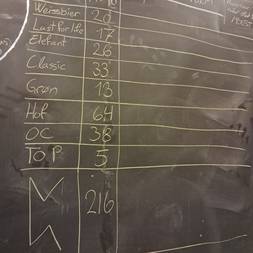 Weissbier 20
Last for life 17
Elefant 26
Classic 33
Grøn 13
Hof 64
OC 38
T.O.P 5
216